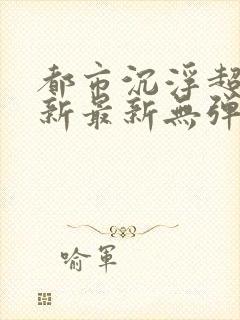 都市沉浮超
新最新無弹
喻軍